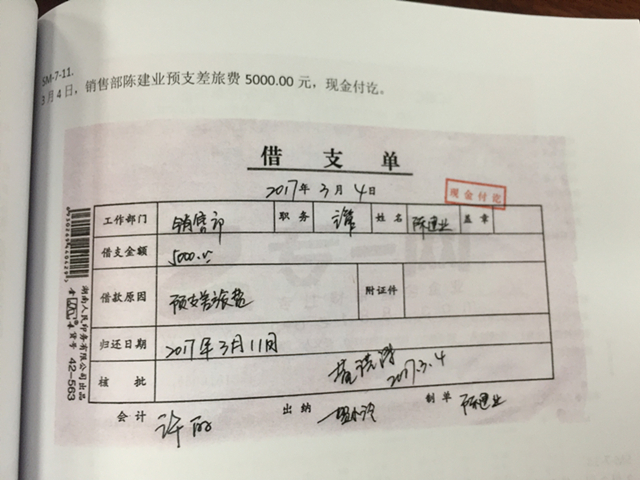 SM-7-11.
3月4日，销售部陈建业预支差旅费5000.00元，现金付讫。
借 支 单
2017年3月4日
现金付讫
工作部门 销售部 职务 姓名 陈建业 盖章
借支金额 5000.00
借款原因 预支差旅费 附证件
归还日期 2017年3月11日
核批 2017.3.4
会计 许丽 出纳 制单 陈建业
湖南人民印务有限公司出品
货号 42-563